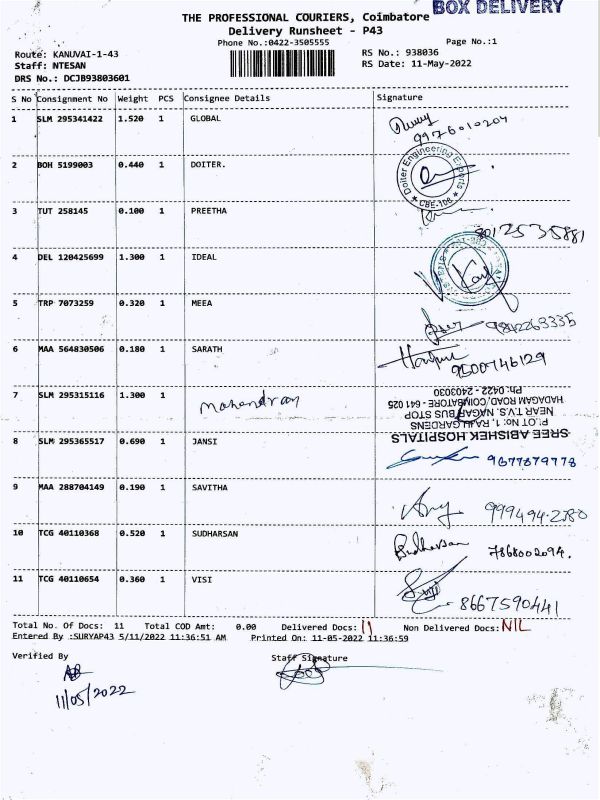 BOX DELIVERY
THE PROFESSIONAL COURIERS, Coimbatore
Delivery Runsheet - P43
Phone No.:0422-3505555
Page No.:1
Route: KANUVAI-1-43
RS No.: 938036
Staff: NTESAN
RS Date: 11-May-2022
DRS No.: DCJB93803601
S No Consignment No Weight PCS Consignee Details Signature
1 SLM 295341422 1.520 1 GLOBAL
9976010204
2 BOH 5199003 0.440 1 DOITER.
Doiter Engineering Exports
★ CBE-108 ★
3 TUT 258145 0.100 1 PREETHA
4 DEL 120425699 1.300 1 IDEAL
5 TRP 7073259 0.320 1 MEEA
9842263335
6 MAA 564830506 0.180 1 SARATH
9500746129
7 SLM 295315116 1.300 1 Mahendran
SREE ABISHEK HOSPITALS
PLOT No: 1, RAJU GARDENS
NEAR T.V.S. NAGAR BUS STOP
COIMBATORE - 641 025
Ph: 0422 - 2403030
8 SLM 295365517 0.690 1 JANSI
9677879778
9 MAA 288704149 0.190 1 SAVITHA
999494-2780
10 TCG 40110368 0.520 1 SUDHARSAN
Sudharsan 7868002094.
11 TCG 40110654 0.360 1 VISI
8667590441
Total No. Of Docs: 11 Total COD Amt: 0.00 Delivered Docs: 11 Non Delivered Docs: NIL
Entered By :SURYAP43 5/11/2022 11:36:51 AM Printed On: 11-05-2022 11:36:59
Verified By Staff Signature
11/05/2022